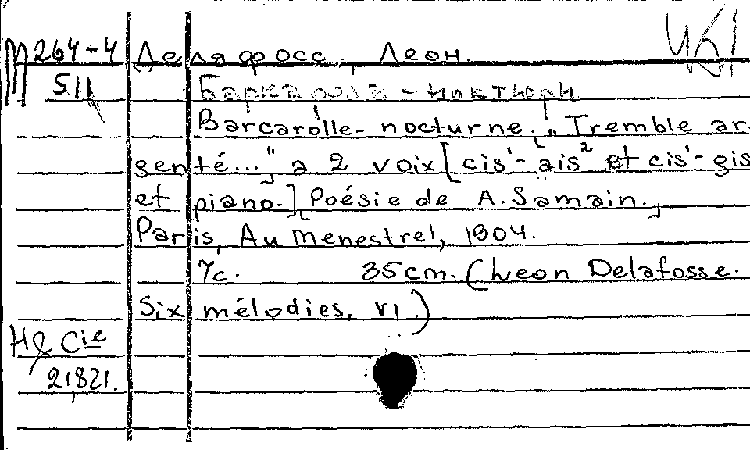 М 264-4 Делафосс, Леон.
511
Баркарола-ноктюрн
Barcarolle-nocturne. „Tremble ar-
genté...", a 2 voix [cis¹-ais² et cis¹-gis
et piano.] Poésie de A. Samain.
Paris, Au Menestrel, 1904.
7c. 35cm. (Léon Delafosse.
Six mélodies, VI.)
H & Cie
21821.